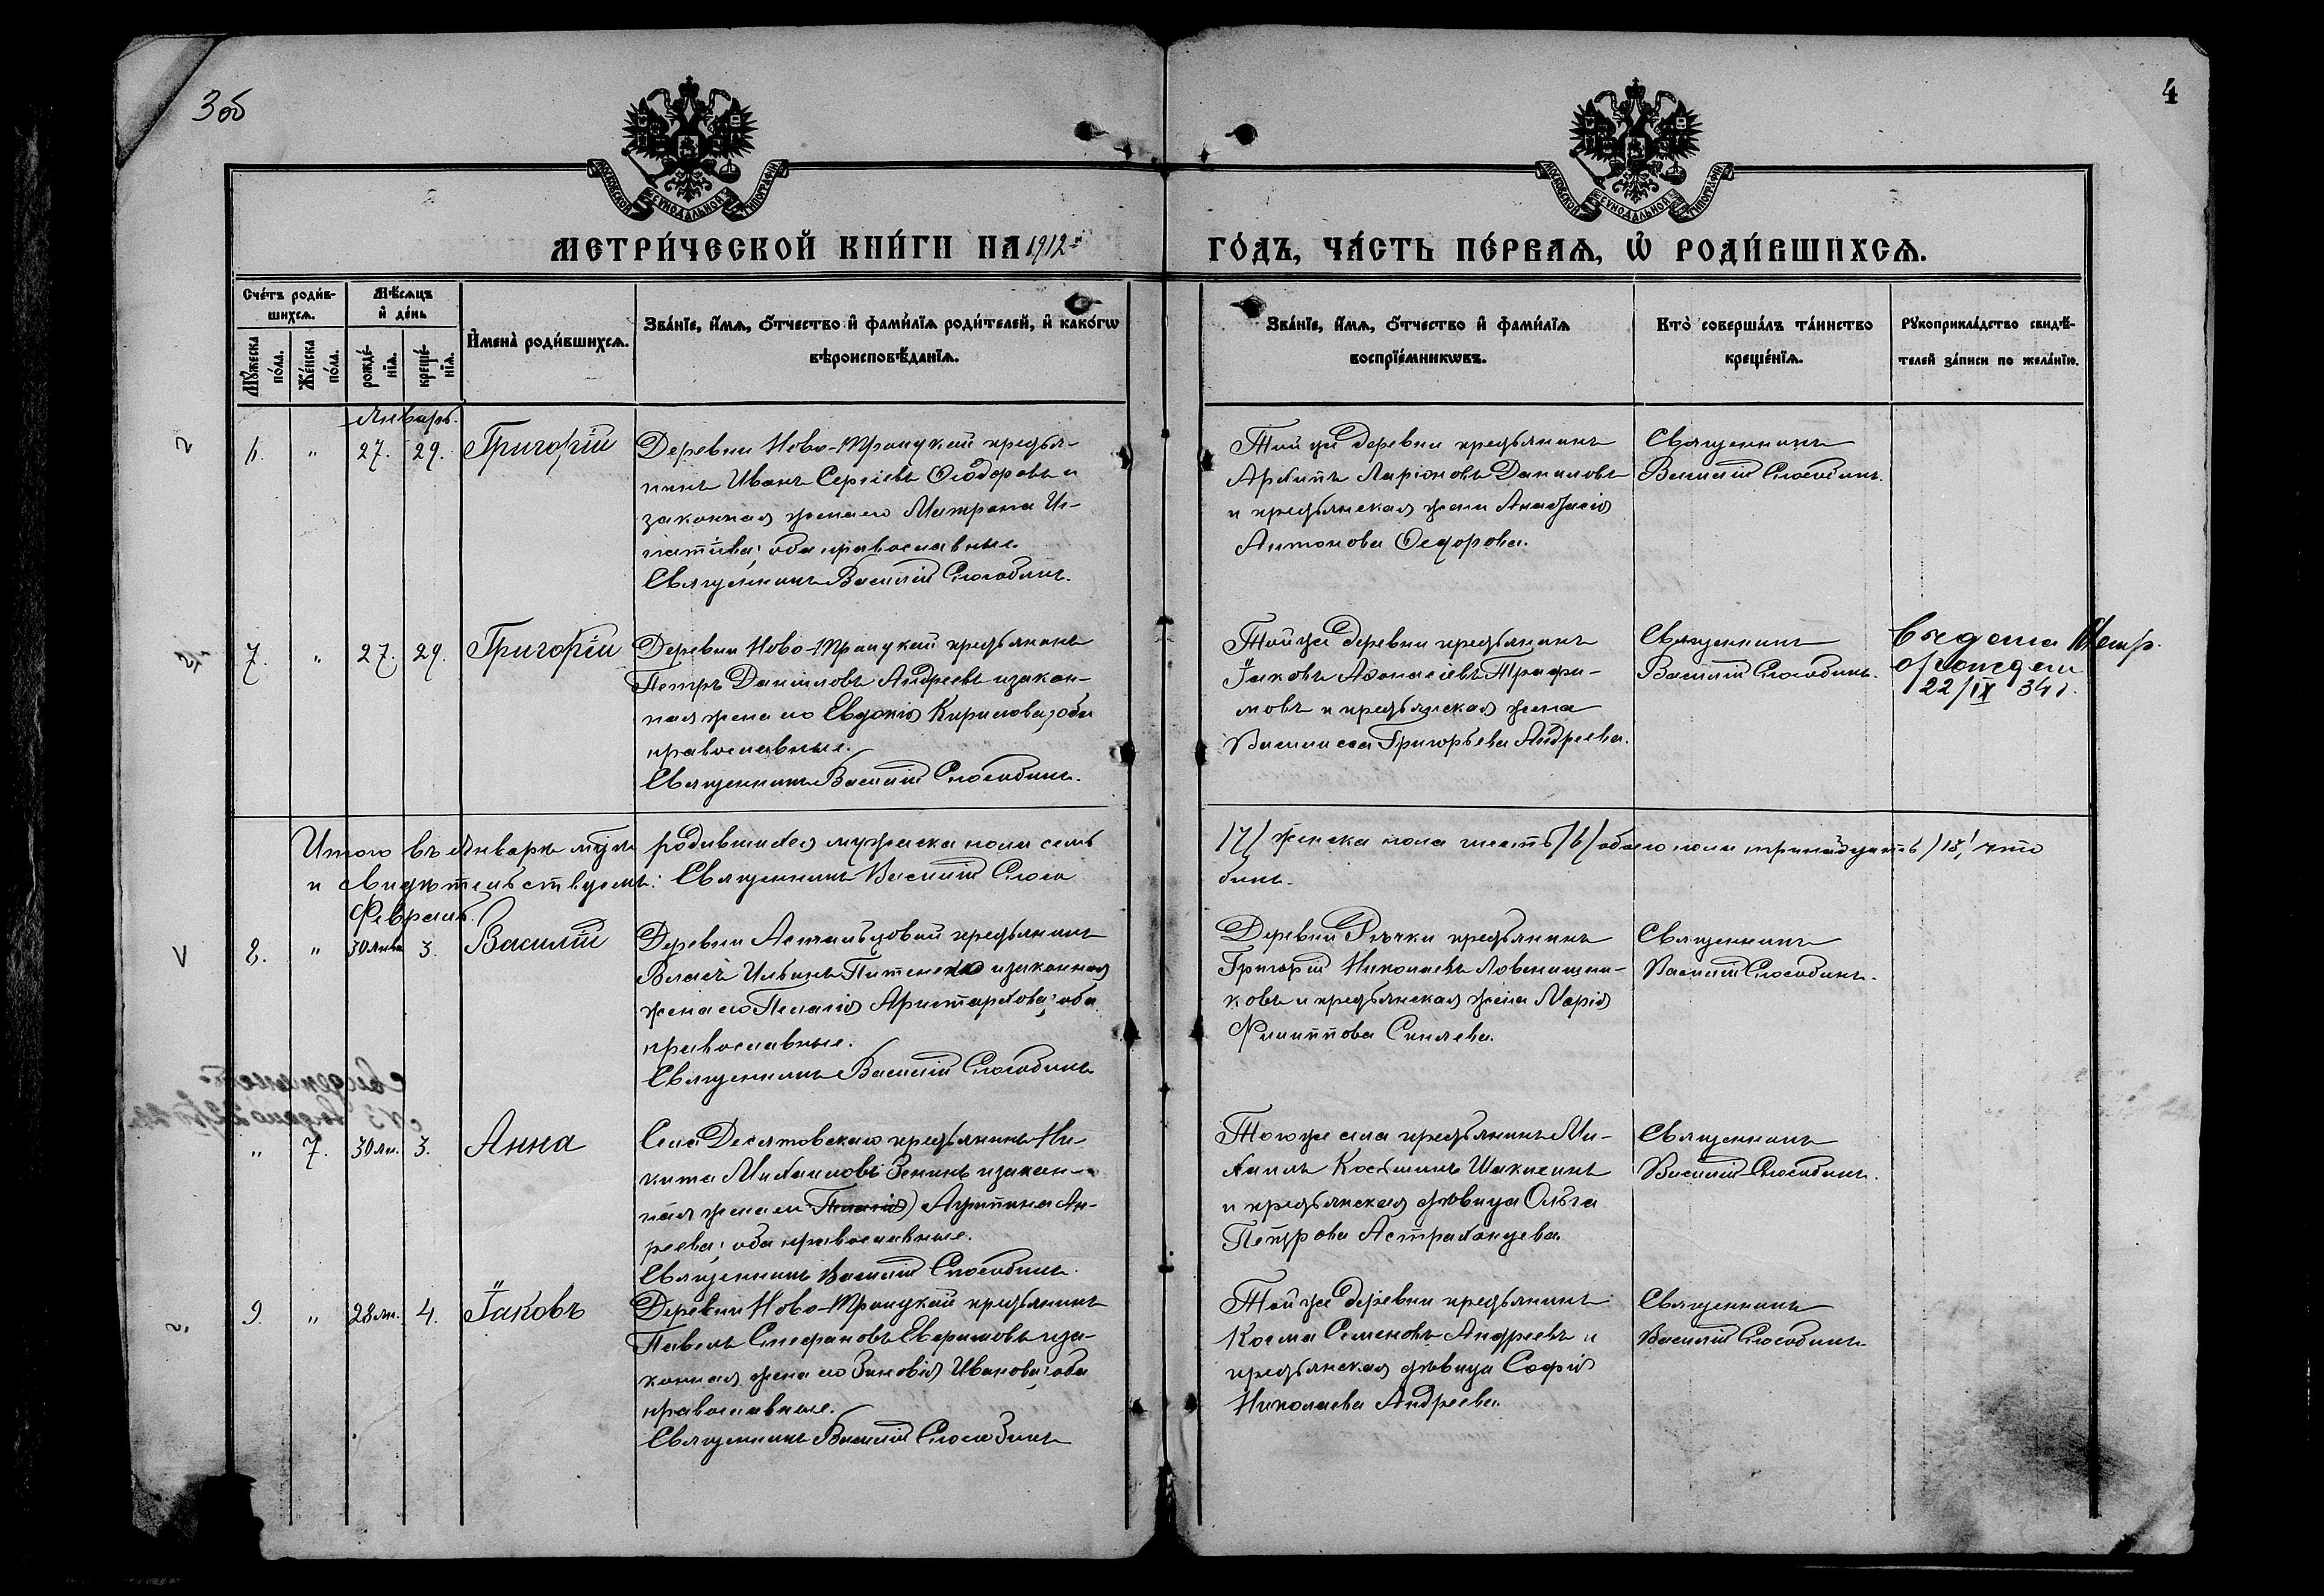 3 об
4
МОСКОВСКОЙ СѴНОДАЛЬНОЙ ТИПОГРАФІИ
МОСКОВСКОЙ СѴНОДАЛЬНОЙ ТИПОГРАФІИ
МЕТРИ́ЧЕСКОЙ КНИ́ГИ НА 1912й ГО́ДЪ, ЧА́СТЬ ПЕ́РВАѦ, Ѡ҆ РОДИ́ВШИХСѦ.
Сче́тъ роди́в-
шихсѧ.
Мѣ́сѧцъ
и҆ де́нь
Мꙋ́жеска
по́ла.
Же́нска
по́ла.
рожде́-
нїѧ.
креще́-
нїѧ.
И҆мена̀ роди́вшихсѧ.
Зва́нїе, и҆́мѧ, ѻ҆́тчество и҆ фами́лїѧ роди́телей, и҆ како́гѡ
вѣроисповѣ́данїѧ.
Зва́нїе, и҆́мѧ, ѻ҆́тчество и҆ фами́лїѧ
воспрїе́мникѡвъ.
Кто̀ соверша́лъ та́инство
креще́нїѧ.
Рꙋкоприкла́дство свидѣ́-
телей за́писи по жела́нїю.
Январь.
6. " 27. 29. Григорій
Деревни Ново-Троицкой крестья-
нинъ Иванъ Сергіевъ Ѳеодоровъ и
законная жена его Матрона Иг-
натіева; оба православные.
Священникъ Василій Способинъ.
Той же деревни крестьянинъ
Архипъ Ларіоновъ Даниловъ
и крестьянская жена Анастасія
Антонова Ѳедорова.
Священникъ
Василій Способинъ.
7. " 27. 29. Григорій
Деревни Ново-Троицкой крестьянинъ
Петръ Даниловъ Андреевъ и закон-
ная жена его Евдокія Кирилова; оба
православные.
Священникъ Василій Способинъ.
Той же деревни крестьянинъ
Іаковъ Аѳанасіевъ Трофи-
мовъ и крестьянская жена
Василисса Григорьева Андреева.
Священникъ
Василій Способинъ.
Выдана Метр.
о рожден
22/IX 34 г.
Итого въ Январѣ м-цѣ родившихся мужеска пола семь /7/ женска пола шесть /6/ обоего пола тринадцать /13/ что
и свидѣтельствуемъ: Священникъ Василій Способинъ.
Февраль.
8. " 30 Янв. 3. Василій
Деревни крестьянинъ
Власъ Ильинъ и законная
жена его Пелагія Аристархова; оба
православные.
Священникъ Василій Способинъ
Деревни Рѣчки крестьянинъ
Григорій Николаевъ
ковъ и крестьянская жена Марія
Филиппова Синяева.
Священникъ
Василій Способинъ.
" 7. 30 Ян. 3. Анна
Села Десятовскаго крестьянинъ Ни-
кита Михаиловъ Зенинъ и закон-
ная жена его Пелагія) Агрипина Ан-
реева; оба православные.
Священникъ Василій Способинъ.
Того же села крестьянинъ Ми-
хаилъ Косьминъ
и крестьянская дѣвица Ольга
Петрова Астраханцева.
Священникъ
Василій Способинъ.
9. " 28 Ян. 4. Іаковъ
Деревни Ново-Троицкой крестьянинъ
Павелъ Стефановъ Ефримовъ и за-
конная жена его Зиновія Иванова; оба
православные.
Священникъ Василій Способинъ
Той же деревни крестьянинъ
Косма Семеновъ Андреевъ и
крестьянская дѣвица Софія
Николаева Андреева.
Священникъ
Василій Способинъ